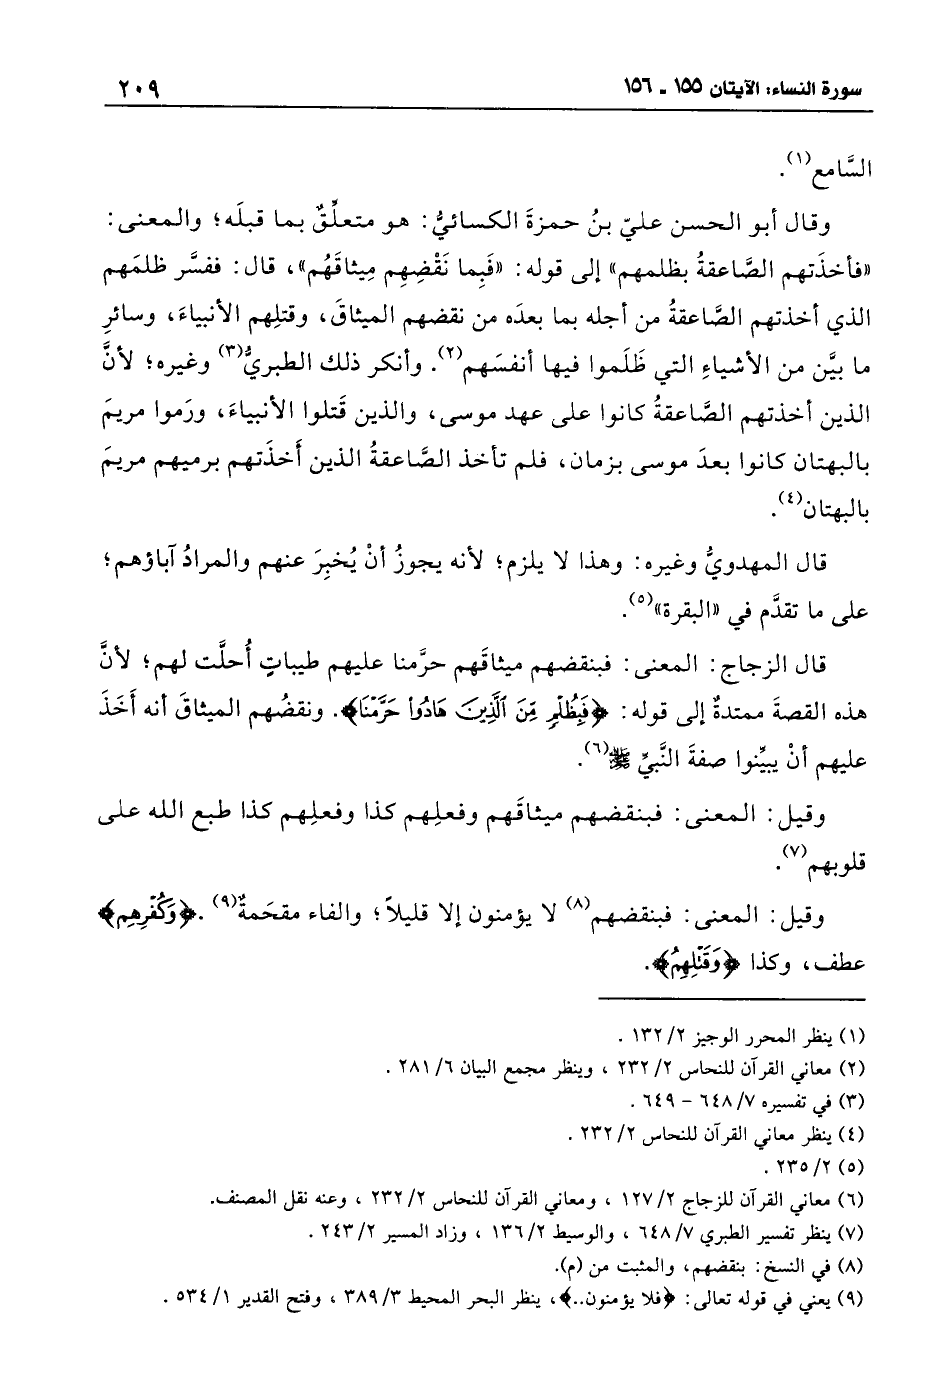 سورة النساء: الآيتان ١٥٥ ـ ١٥٦ ٢٠٩
السَّامع(١).
وقال أبو الحسن عليّ بنُ حمزةَ الكسائيُّ: هو متعلِّقٌ بما قبلَه؛ والمعنى:
«فأخذَتهم الصَّاعقةُ بظلمهم» إلى قوله: «فَبِما نَقْضِهِم مِيثاقَهُم»، قال: ففسَّر ظلمَهم
الذي أخذتهم الصَّاعقةُ من أجله بما بعدَه من نقضهم الميثاقَ، وقتلِهم الأنبياءَ، وسائرِ
ما بيَّن من الأشياءِ التي ظَلَموا فيها أنفسَهم(٢). وأنكر ذلك الطبريُّ(٣) وغيره؛ لأنَّ
الذين أخذتهم الصَّاعقةُ كانوا على عهد موسى، والذين قَتلوا الأنبياءَ، ورَموا مريمَ
بالبهتان كانوا بعدَ موسى بزمان، فلم تأخذ الصَّاعقةُ الذين أَخذَتهم برميهم مريمَ
بالبهتان(٤).
قال المهدويُّ وغيره: وهذا لا يلزم؛ لأنه يجوزُ أنْ يُخبِرَ عنهم والمرادُ آباؤهم؛
على ما تقدَّم في «البقرة»(٥).
قال الزجاج: المعنى: فبنقضهم ميثاقَهم حرَّمنا عليهم طيباتٍ أُحلَّت لهم؛ لأنَّ
هذه القصةَ ممتدةٌ إلى قوله: ﴿فَبِظُلْمٍ مِّنَ ٱلَّذِينَ هَادُوا۟ حَرَّمْنَا﴾. ونقضُهم الميثاقَ أنه أَخَذَ
عليهم أنْ يبيِّنوا صفةَ النَّبيِّ ﷺ(٦).
وقيل: المعنى: فبنقضهم ميثاقَهم وفعلِهم كذا وفعلِهم كذا طبع الله على
قلوبهم(٧).
وقيل: المعنى: فبنقضهم(٨) لا يؤمنون إلا قليلاً؛ والفاء مقحَمةٌ(٩). ﴿وَكُفْرِهِم﴾
عطف، وكذا ﴿وَقَتْلِهِمُ﴾.
(١) ينظر المحرر الوجيز ٢/ ١٣٢ .
(٢) معاني القرآن للنحاس ٢/ ٢٣٢ ، وينظر مجمع البيان ٦/ ٢٨١ .
(٣) في تفسيره ٧/ ٦٤٨ - ٦٤٩ .
(٤) ينظر معاني القرآن للنحاس ٢/ ٢٣٢ .
(٥) ٢/ ٢٣٥ .
(٦) معاني القرآن للزجاج ٢/ ١٢٧ ، ومعاني القرآن للنحاس ٢/ ٢٣٢ ، وعنه نقل المصنف.
(٧) ينظر تفسير الطبري ٧/ ٦٤٨ ، والوسيط ٢/ ١٣٦ ، وزاد المسير ٢/ ٢٤٣ .
(٨) في النسخ: بنقضهم، والمثبت من (م).
(٩) يعني في قوله تعالى: ﴿فلا يؤمنون..﴾، ينظر البحر المحيط ٣/ ٣٨٩ ، وفتح القدير ١/ ٥٣٤ .